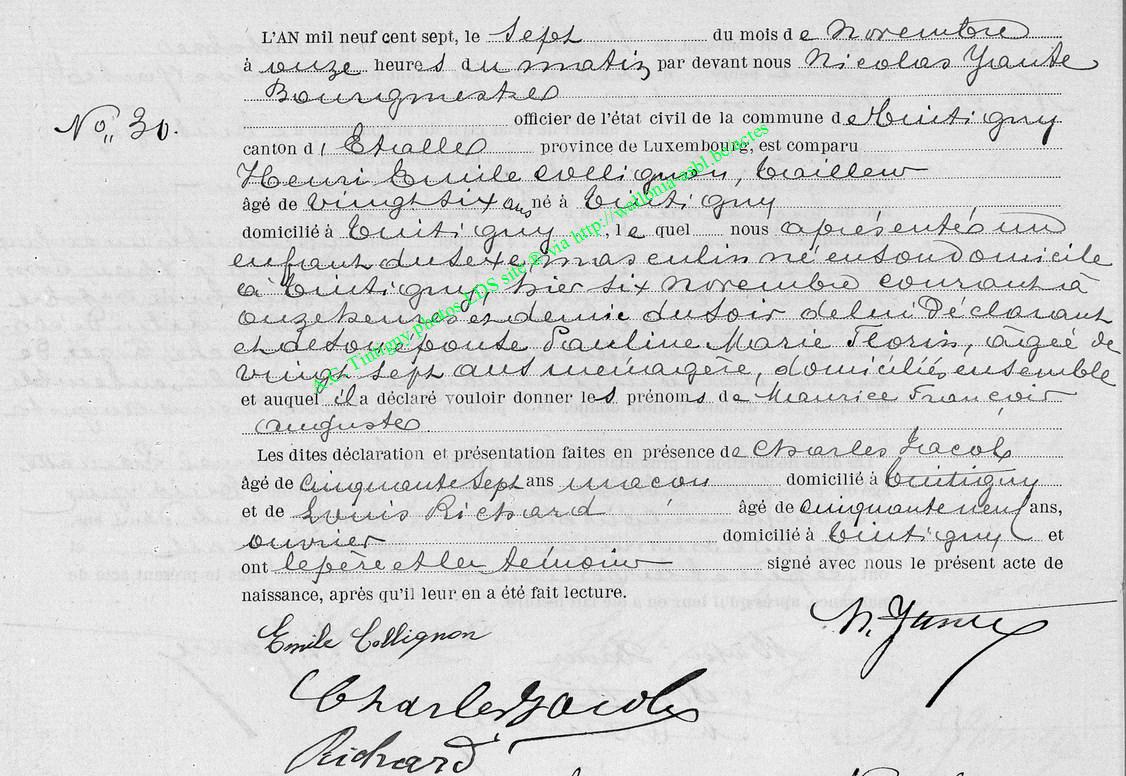 L'AN mil neuf cent sept, le sept du mois de Novembre
à onze heures du matin, par devant nous Nicolas
Bourgmestre
No,, 30.
officier de l'état civil de la commune de Tintigny
canton d'Etalle province de Luxembourg, est comparu
Henri Emile Collignon, tailleur
âgé de vingt six ans né à Tintigny
domicilié à Tintigny, lequel nous a présenté un
enfant du sexe masculin né en son domicile
à Tintigny, hier six Novembre courant à
onze heures et demie du soir de lui Déclarant
et de son épouse Pauline Marie Florin, âgée de
vingt sept ans ménagère, domiciliés ensemble
et auquel il a déclaré vouloir donner les prénoms de Maurice François
Auguste.
Les dites déclaration et présentation faites en présence de Charles Jacob
âgé de cinquante sept ans maçon domicilié à Tintigny
et de Louis Richard âgé de cinquante neuf ans,
ouvrier domicilié à Tintigny et
ont le père et les témoins signé avec nous le présent acte de
naissance, après qu'il leur en a été fait lecture.
Emile Collignon
Charles Jacobs
Richard
A.C. Tintigny photos LDS site @ via http://wallonia-asbl.be/actes